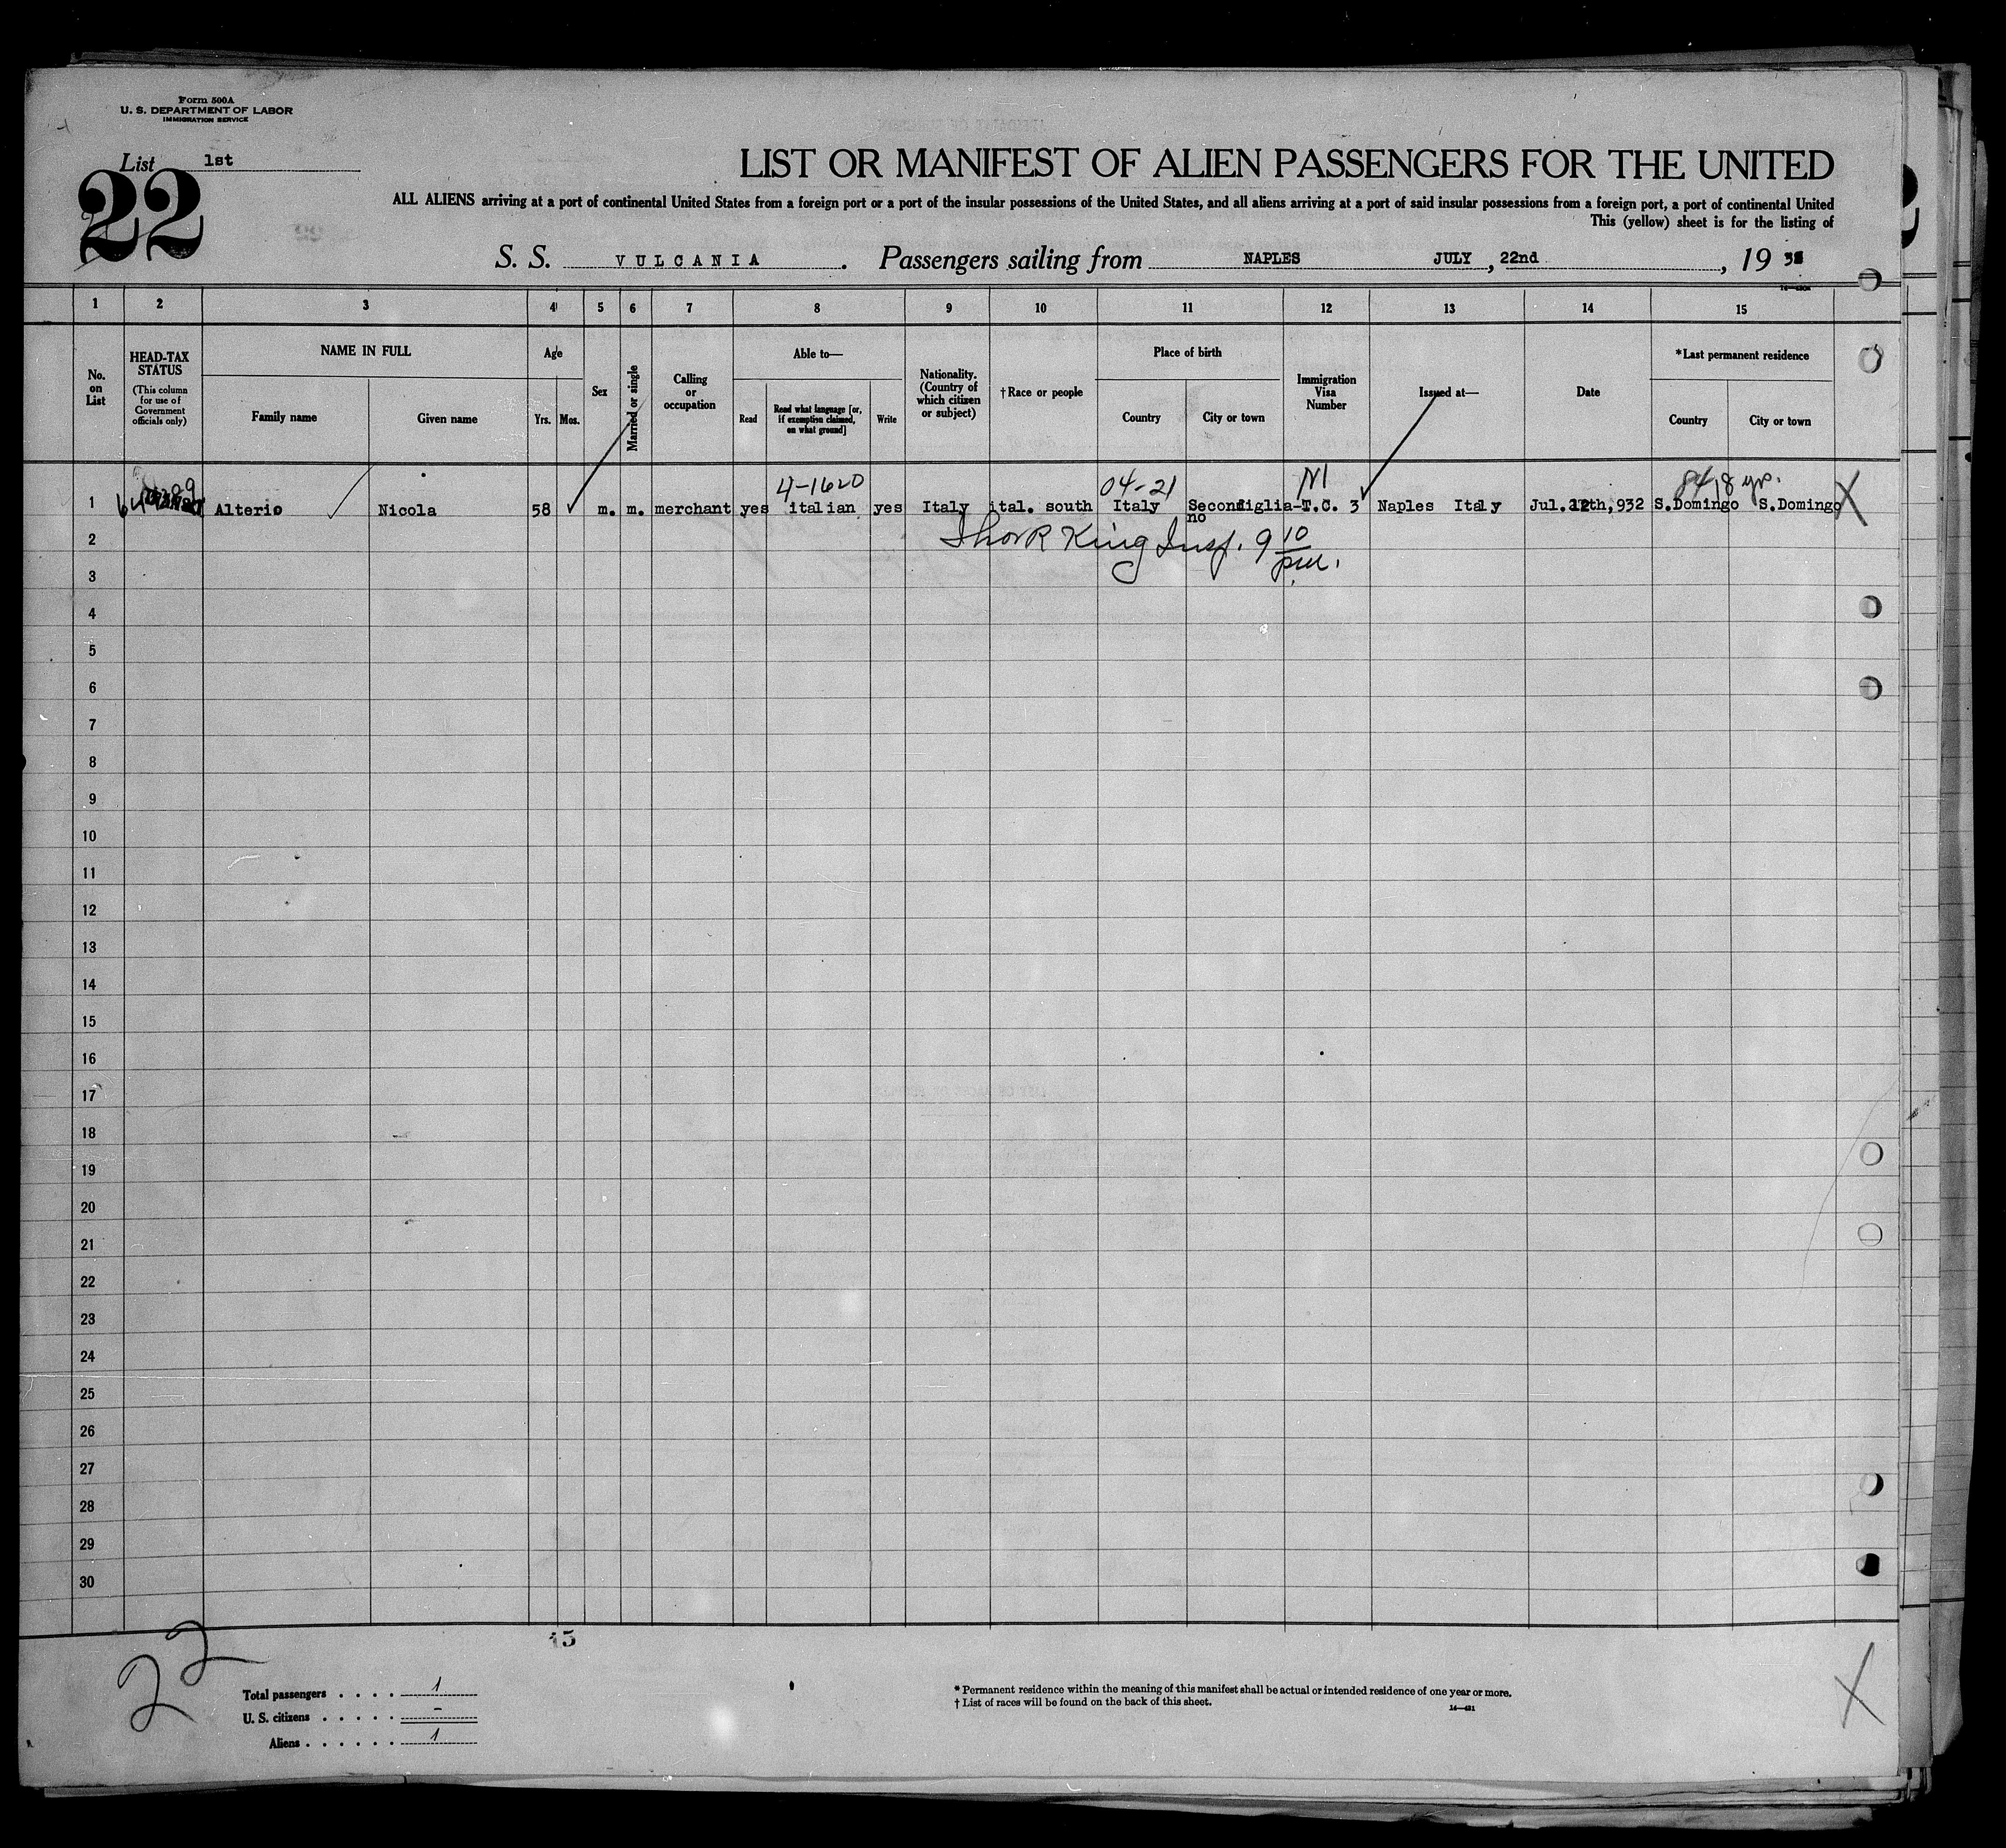 Form 500A
U. S. DEPARTMENT OF LABOR
IMMIGRATION SERVICE
List 1st
22
LIST OR MANIFEST OF ALIEN PASSENGERS FOR THE UNITED
ALL ALIENS arriving at a port of continental United States from a foreign port or a port of the insular possessions of the United States, and all aliens arriving at a port of said insular possessions from a foreign port, a port of continental United
This (yellow) sheet is for the listing of
S. S. VULCANIA. Passengers sailing from NAPLES JULY, 22nd, 19
1 2 3 4 5 6 7 8 9 10 11 12 13 14 15
No. on List
HEAD-TAX STATUS
(This column for use of Government officials only)
NAME IN FULL
Family name Given name
Age
Yrs. Mos.
Sex
Married or single
Calling or occupation
Able to—
Read
Read what language [or, if exemption claimed, on what ground]
Write
Nationality. (Country of which citizen or subject)
† Race or people
Place of birth
Country City or town
Immigration Visa Number
Issued at—
Date
*Last permanent residence
Country City or town
4-1620 04-21 NI 84 18 yrs.
1 Alterio Nicola 58 m. m. merchant yes italian yes Italy ital. south Italy Secondiglia-T.C. 3 Naples Italy Jul. 12th,932 S.Domingo S.Domingo X
no
2 King Insp. 9 10
pm.
3
4
5
6
7
8
9
10
11
12
13
14
15
16
17
18
19
20
21
22
23
24
25
26
27
28
29
30
15
22
Total passengers . . . . 1
U. S. citizens . . . . . -
Aliens . . . . . . 1
* Permanent residence within the meaning of this manifest shall be actual or intended residence of one year or more.
† List of races will be found on the back of this sheet.
X